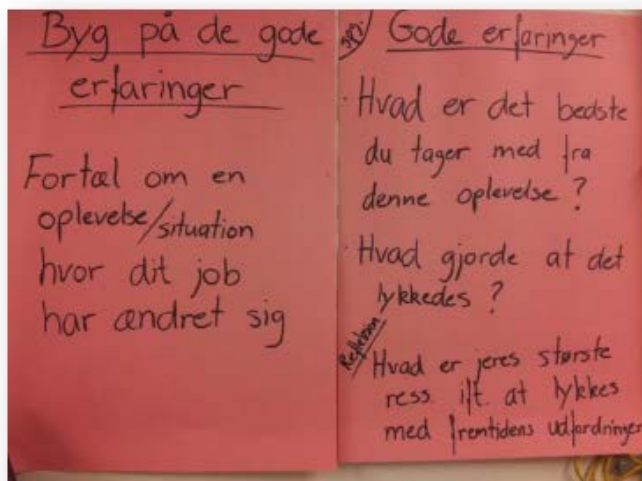 Byg på de gode
erfaringer
Fortæl om en
oplevelse/situation
hvor dit job
har ændret sig
Gode erfaringer
· Hvad er det bedste
du tager med fra
denne oplevelse?
· Hvad gjorde at det
lykkedes?
Refleksion
Hvad er jeres største
ress ift. at lykkes
med fremtidens udfordringer